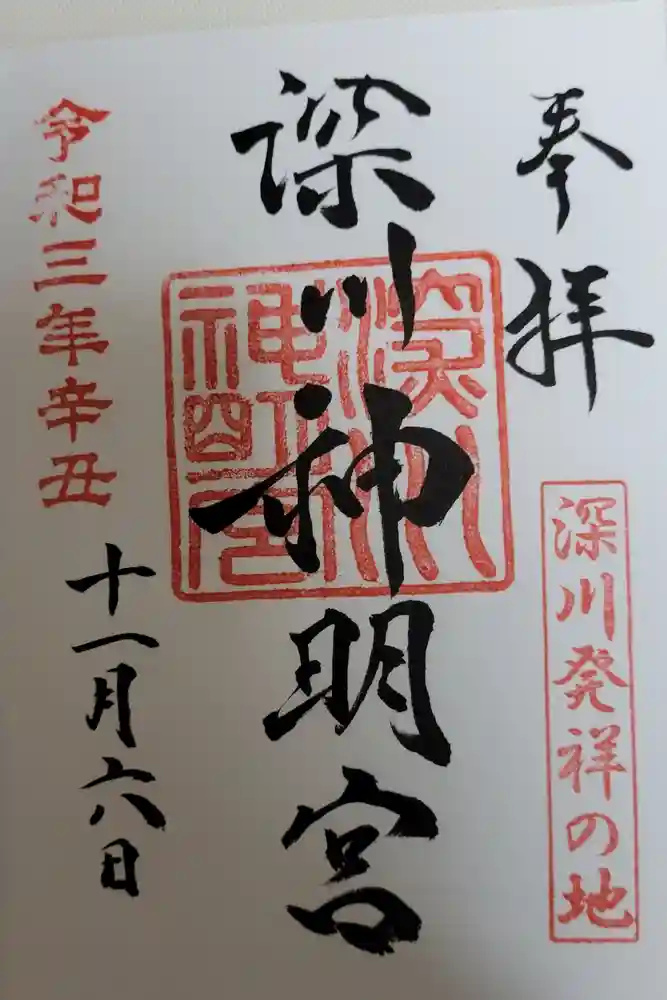 奉拝
深川発祥の地
深川神明宮
深川
神明宮
令和三年辛丑
十一月六日